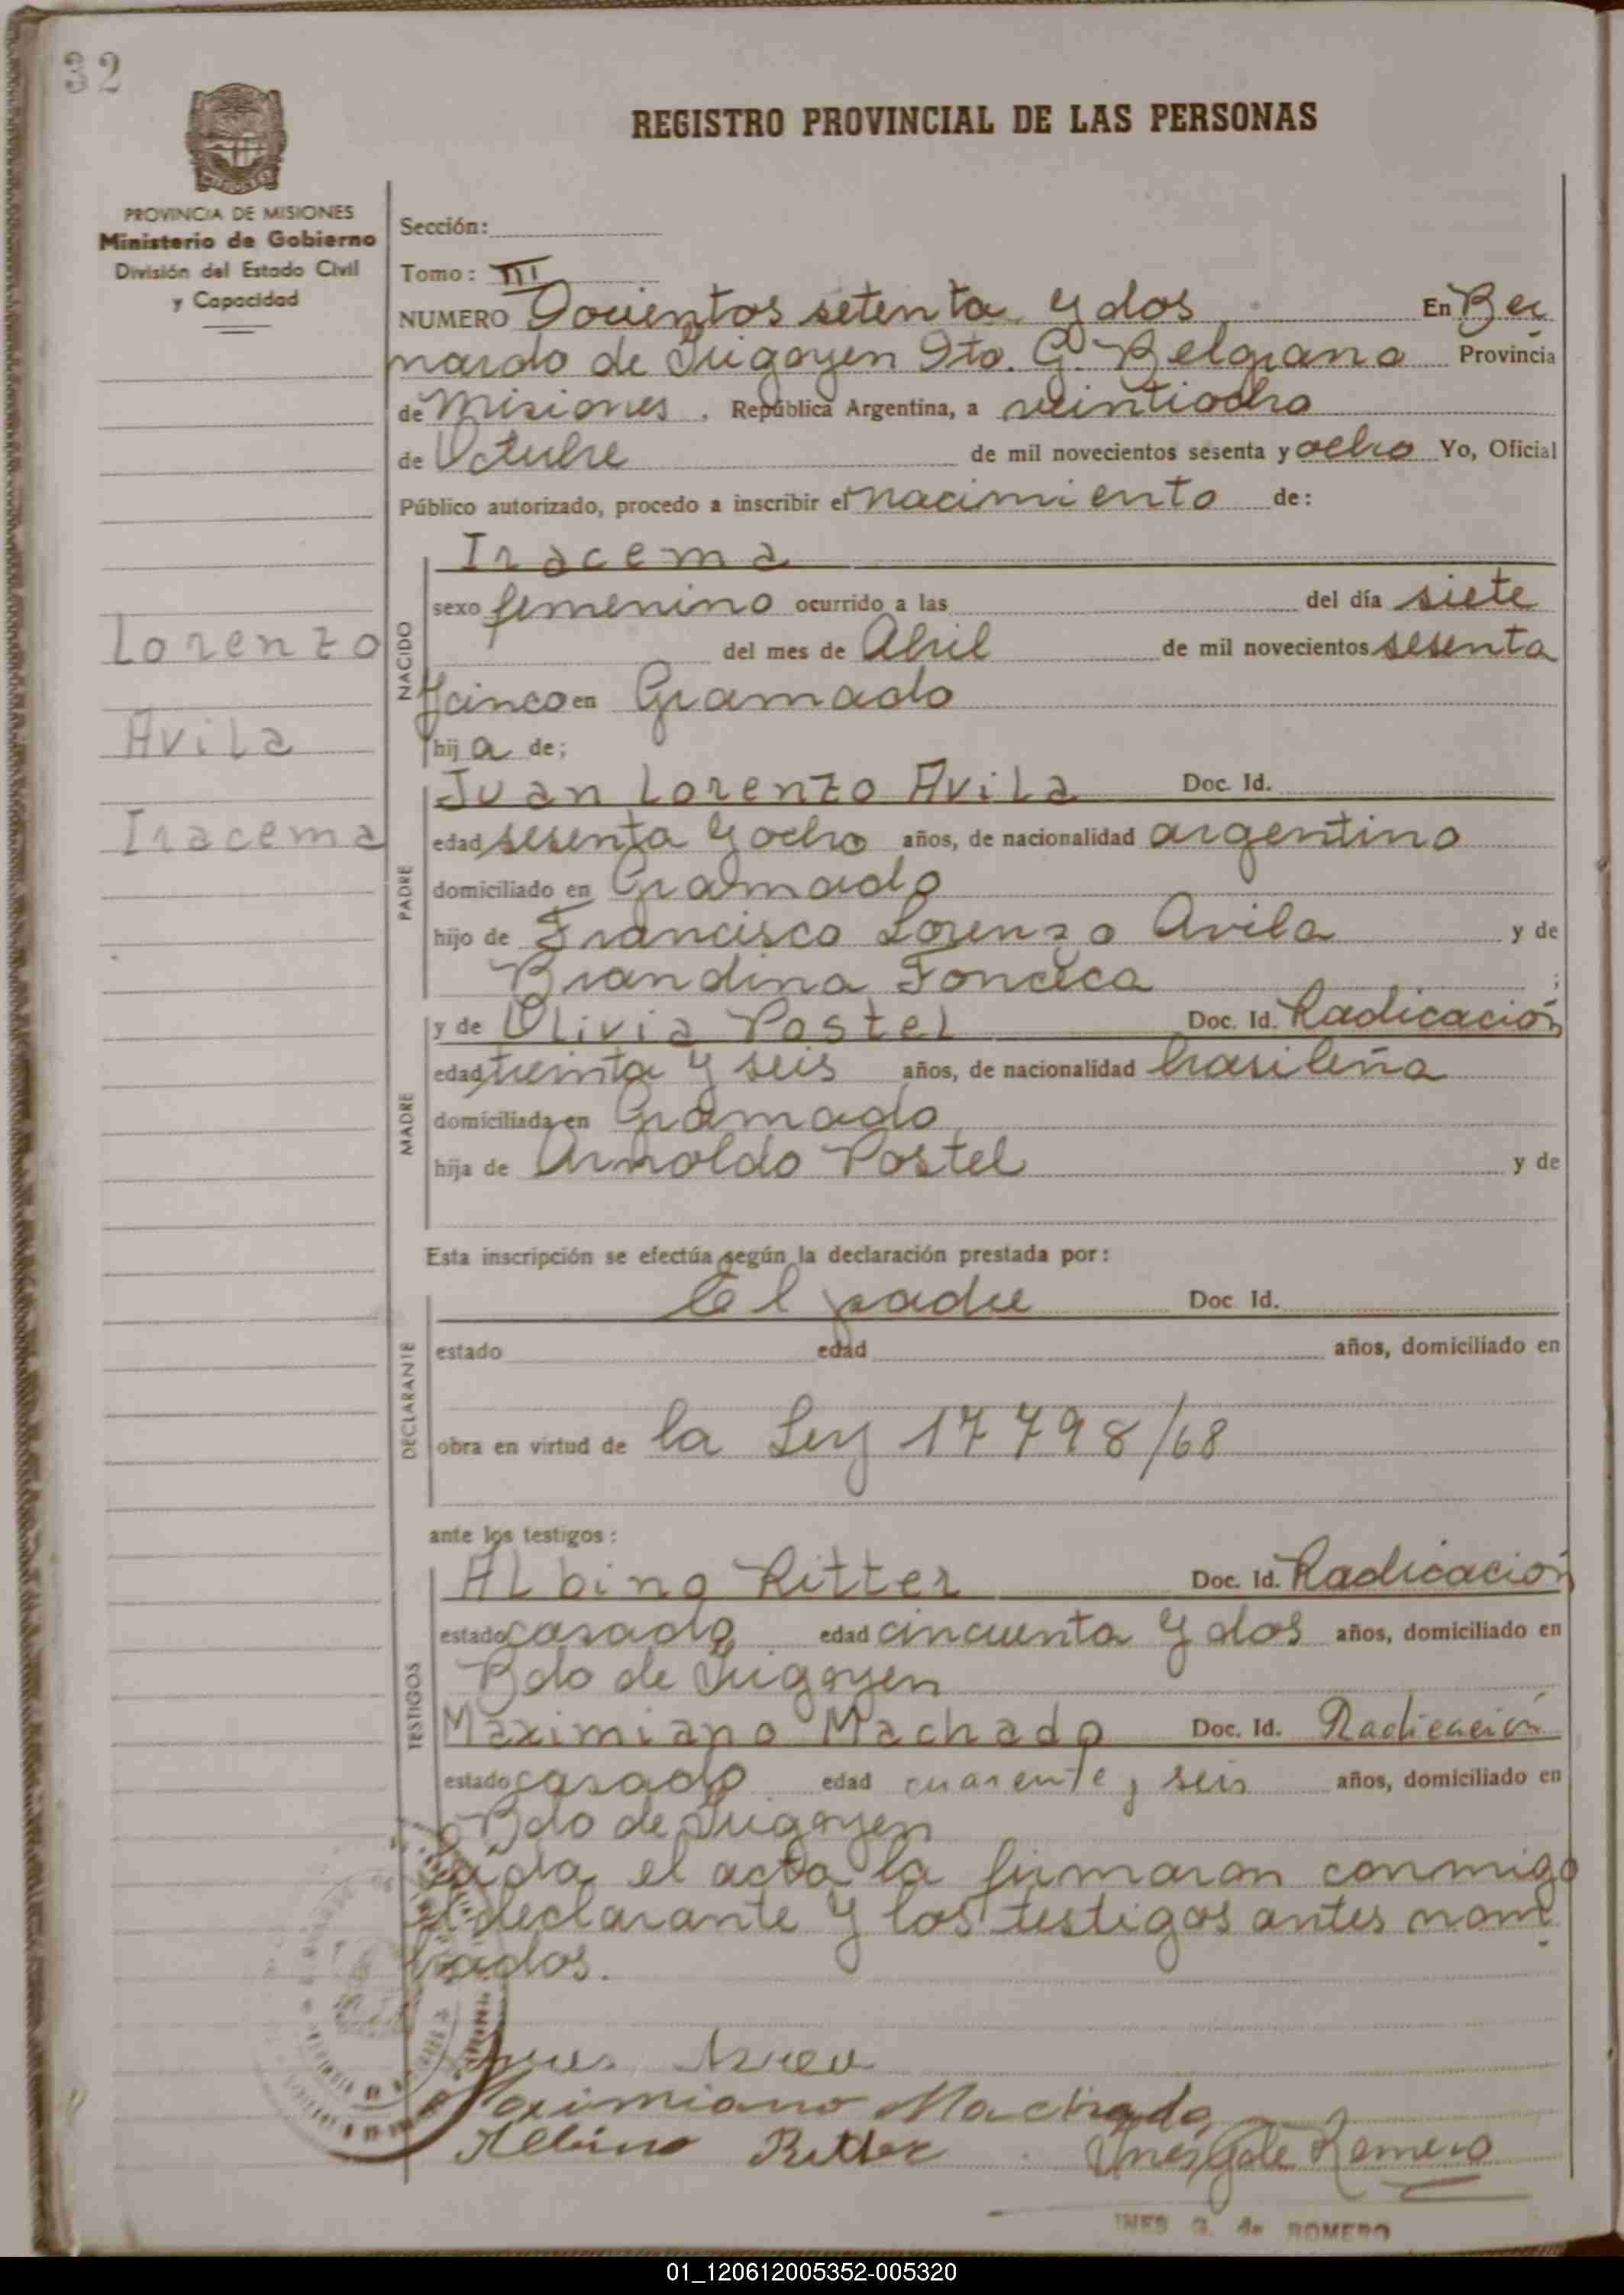 32
REGISTRO PROVINCIAL DE LAS PERSONAS
PROVINCIA DE MISIONES
Ministerio de Gobierno
División del Estado Civil
y Capacidad
Sección:
Tomo: III
NUMERO Docientos setenta y dos En Ber
nardo de Irigoyen Dto. Gl. Belgrano Provincia
de Misiones, República Argentina, a veintiocho
de Octubre de mil novecientos sesenta y ocho Yo, Oficial
Público autorizado, procedo a inscribir el nacimiento de:
Iracema
NACIDO
sexo femenino ocurrido a las del día siete
del mes de Abril de mil novecientos sesenta
y cinco en Gramado
hija de;
Lorenzo
Avila
Iracema
PADRE
Juan Lorenzo Avila Doc. Id.
edad sesenta y ocho años, de nacionalidad argentino
domiciliado en Gramado
hijo de Francisco Lorenzo Avila y de
Brandina Fonceca ;
MADRE
y de Olivia Postel Doc. Id. Radicación
edad treinta y seis años, de nacionalidad brasileña
domiciliada en Gramado
hija de Arnoldo Postel y de
Esta inscripción se efectúa según la declaración prestada por:
DECLARANTE
El padre Doc. Id.
estado edad años, domiciliado en
obra en virtud de la Ley 17798/68
ante los testigos:
TESTIGOS
Albino Ritter Doc. Id. Radicación
estado casado edad cincuenta y dos años, domiciliado en
Bdo de Irigoyen
Maximiano Machado Doc. Id. Radicación
estado casado edad cuarente y seis años, domiciliado en
Bdo de Irigoyen
Leída el acta la firmaron conmigo
el declarante y los testigos antes nom
brados.
Maximiano Machado
Albino Ritter Ines G de Romero
INES G. de ROMERO
01_120612005352-005320